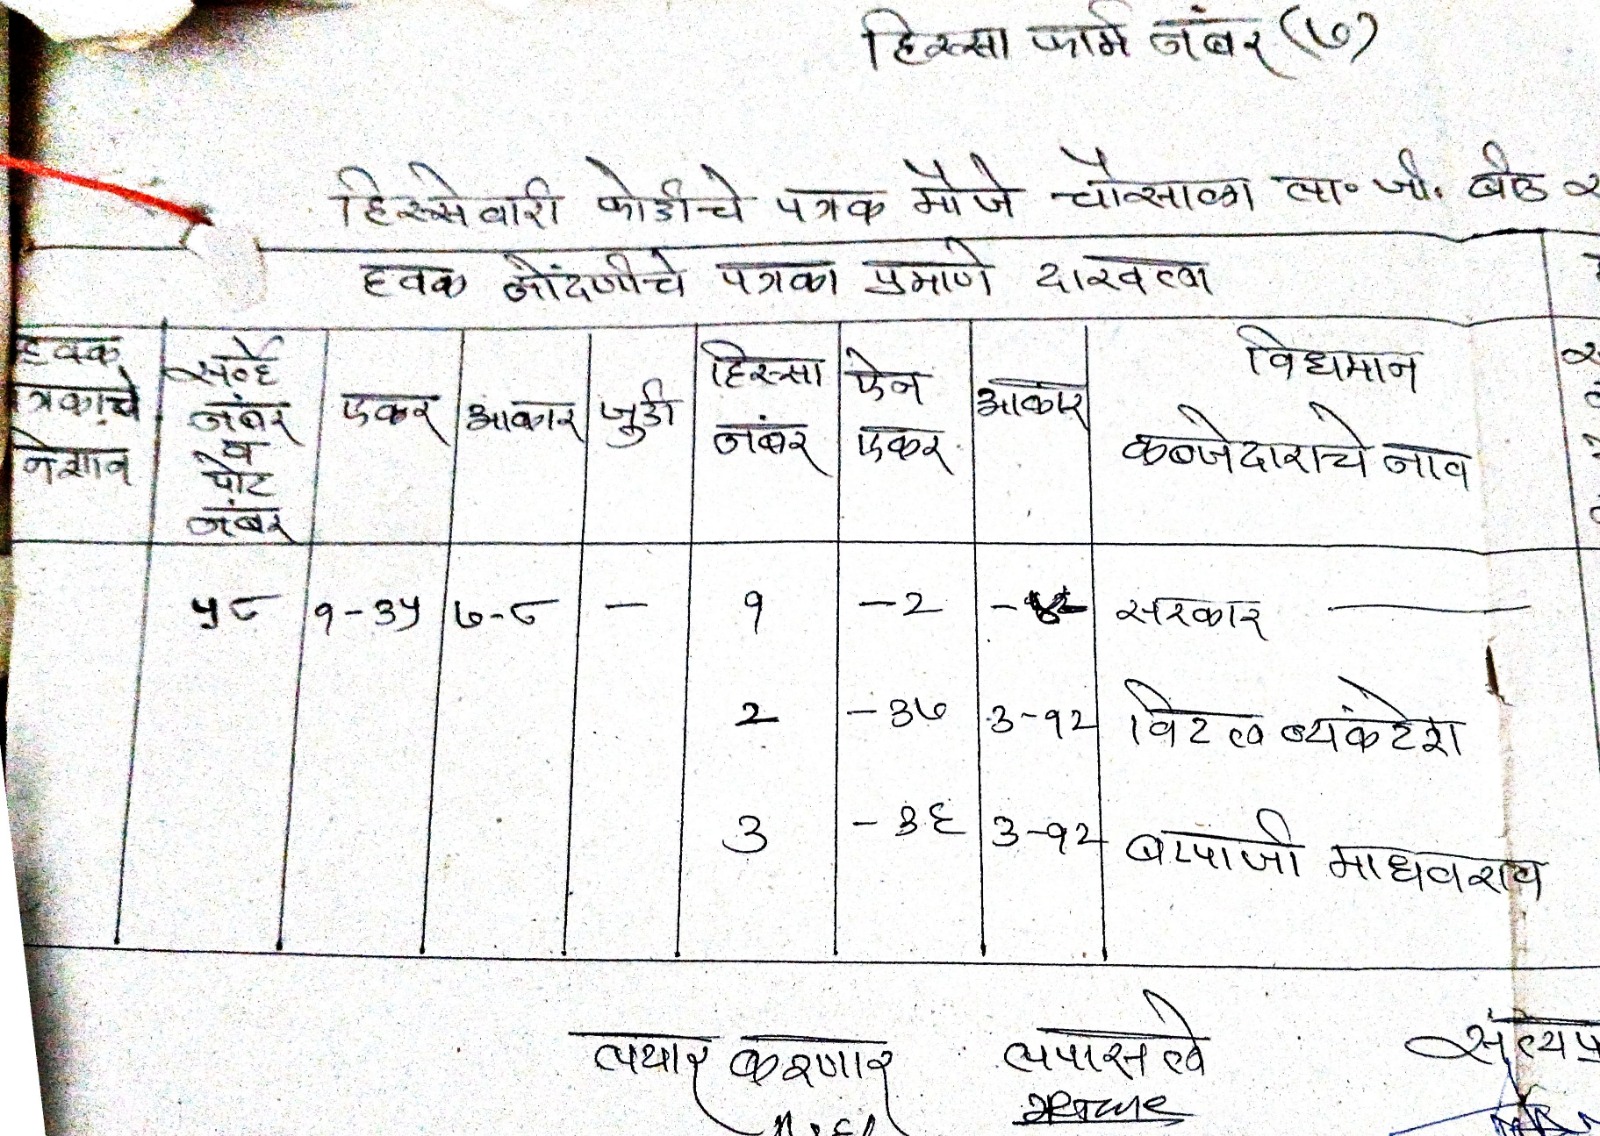 हिस्सा फार्म नंबर (७)
हिस्सेवारी फोडीचे पत्रक मौजे चौसाळा ता॰ जी. बीड
हक्क नोंदणीचे पत्रका प्रमाणे दाखला
हक्क त्रकाचे सर्व्हे नंबर व पोट नंबर एकर आकार जुडी हिस्सा नंबर ऐन एकर आकार विद्यमान कब्जेदाराचे नाव
५८ १-३५ ७-८ — १ -२ सरकार
२ -३७ ३-१२ विठल व्यंकटेश
३ -३६ ३-१२ बाप्पाजी माधवराव
तयार करणार तपासले सत्यप्र